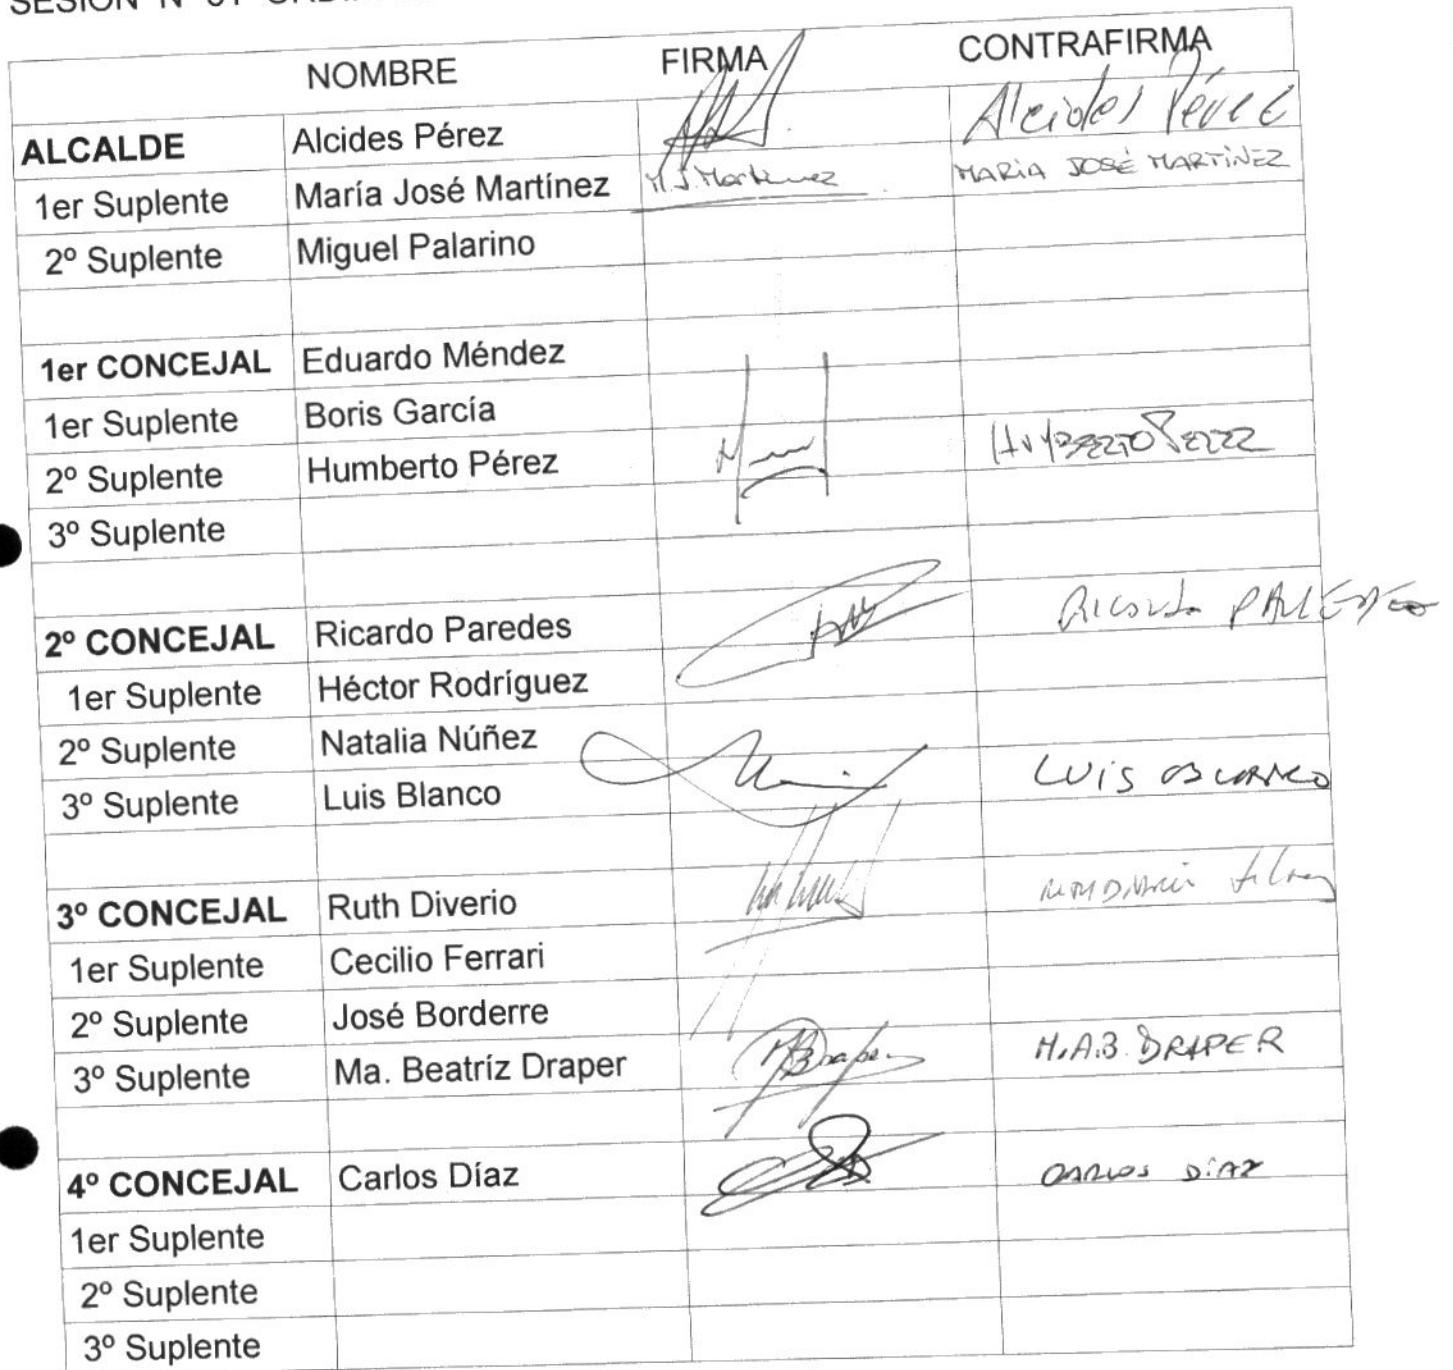 NOMBRE FIRMA CONTRAFIRMA
ALCALDE Alcides Pérez Alcides Pérez
1er Suplente María José Martínez M.J.Martínez MARIA JOSÉ MARTÍNEZ
2º Suplente Miguel Palarino
1er CONCEJAL Eduardo Méndez
1er Suplente Boris García
2º Suplente Humberto Pérez HUMBERTO PEREZ
3º Suplente
2º CONCEJAL Ricardo Paredes Ricardo PAREDES
1er Suplente Héctor Rodríguez
2º Suplente Natalia Núñez
3º Suplente Luis Blanco LUIS BLANCO
3º CONCEJAL Ruth Diverio
1er Suplente Cecilio Ferrari
2º Suplente José Borderre
3º Suplente Ma. Beatríz Draper M.A.B. DRAPER
4º CONCEJAL Carlos Díaz CARLOS DÍAZ
1er Suplente
2º Suplente
3º Suplente